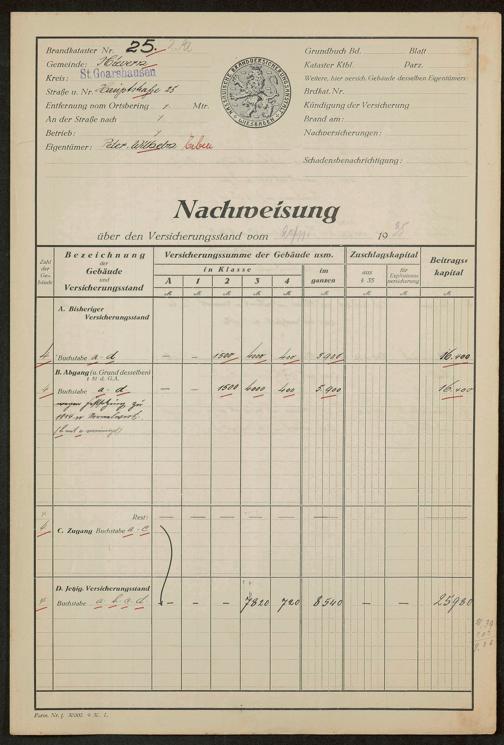 Brandkataster Nr. 25.
Gemeinde:
Kreis: St. Goarshausen
Straße u. Nr. Hauptstraße 25
Entfernung vom Ortsbering / Mtr.
An der Straße nach /
Betrieb: /
Eigentümer: Peter Wilhelm Erben
NASSAUISCHE BRANDVERSICHERUNGSANSTALT
WIESBADEN
Grundbuch Bd. Blatt
Kataster Ktbl. Parz.
Weitere, hier versich. Gebäude desselben Eigentümers
Brdkat. Nr.
Kündigung der Versicherung
Brand am:
Nachversicherungen:
Schadensbenachrichtigung:
Nachweisung
über den Versicherungsstand vom 1935
Zahl der Gebäude
Bezeichnung der Gebäude und Versicherungsstand
Versicherungssumme der Gebäude usw.
in Klasse
A 1 2 3 4
im ganzen
Zuschlagskapital
aus § 35
für Explosionsversicherung
Beitragskapital
A. Bisheriger Versicherungsstand
4 Buchstabe a - d – – 1500 4000 400 5.900 16.400
B. Abgang (u. Grund desselben)
§ 51 d. G.A.
4 Buchstabe a - d – – 1500 4000 400 5.900 16.400
wegen Festsetzung zu
1914er
Rest: – – – – – – – – –
4 C. Zugang Buchstabe a - c
D. Jetzig. Versicherungsstand
4 Buchstabe a. b. c. d – – 7820 720 8540 – – 25980